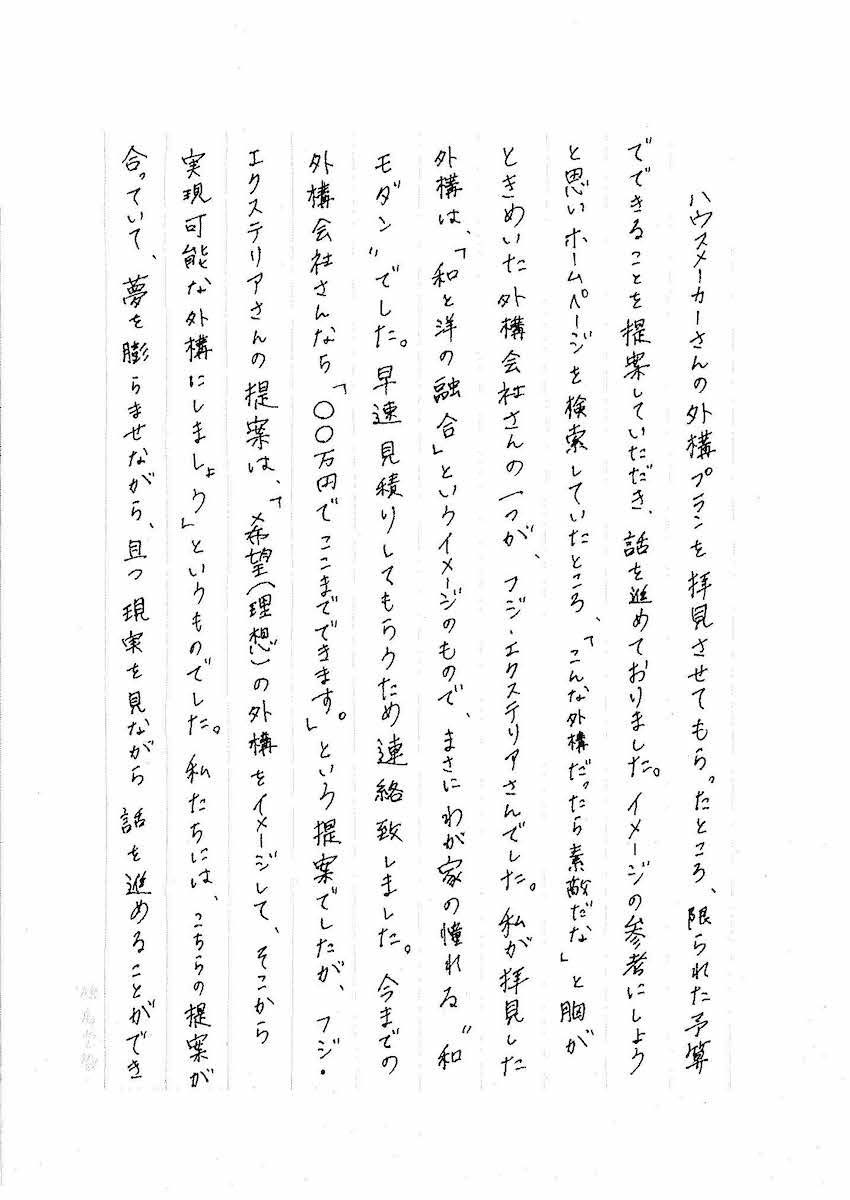 ハウスメーカーさんの外構プランを拝見させてもらったところ、限られた予算
でできることを提案していただき、話を進めておりました。イメージの参考にしよう
と思いホームページを検索していたところ、「こんな外構だったら素敵だな」と胸が
ときめいた外構会社さんの一つが、フジ・エクステリアさんでした。私が拝見した
外構は、「和と洋の融合」というイメージのもので、まさにわが家の憧れる〝和
モダン〟でした。早速見積りしてもらうため連絡致しました。今までの
外構会社さんなら「〇〇万円でここまでできます。」という提案でしたが、フジ・
エクステリアさんの提案は、「希望(理想)の外構をイメージして、そこから
実現可能な外構にしましょう」というものでした。私たちには、こちらの提案が
合っていて、夢を膨らませながら、且つ現実を見ながら話を進めることができ